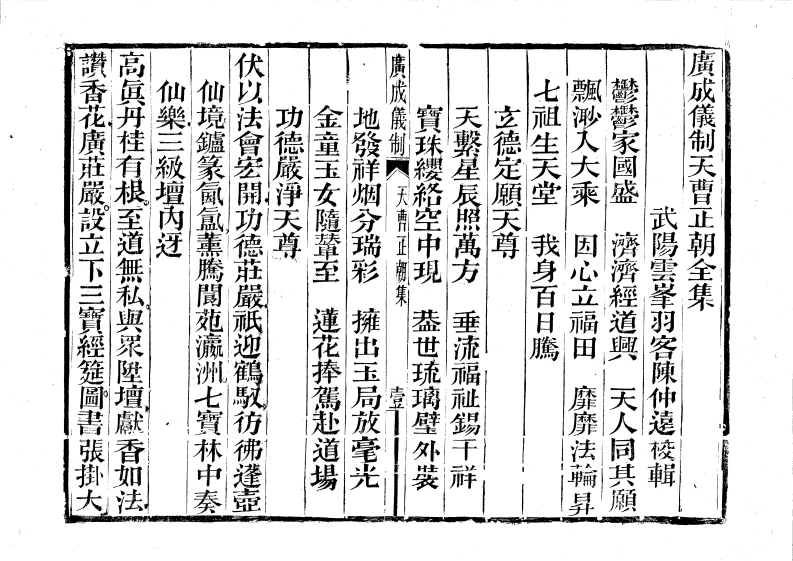 廣成儀制天曹正朝全集
武陽雲峯羽客陳仲遠校輯
鬱鬱家國盛　濟濟經道興　天人同其願
飄渺入大乘　因心立福田　靡靡法輪昇
七祖生天堂　我身百日騰
玄德定願天尊
天繫星辰照萬方　垂流福祉錫千祥
寶珠纓絡空中現　葢世琉璃壁外裝
廣成儀制　天曹正朝集　壹
地發祥烟分瑞彩　擁出玉局放毫光
金童玉女隨輦至　蓮花捧駕赴道場
功德嚴淨天尊
伏以法會宏開功德莊嚴。祇迎鶴馭，彷彿蓬壺
仙境，鑪篆氤氳，薰騰閬苑瀛洲，七寶林中奏
仙樂，三級壇內迓
高眞丹桂有根。至道無私。與衆陞壇，獻香如法
讚香花。廣莊嚴。設立下三寶經筵。圖書張掛大